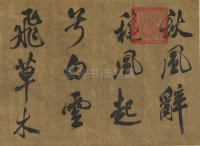 秋風辭
秋風起
兮白雲
飛草木